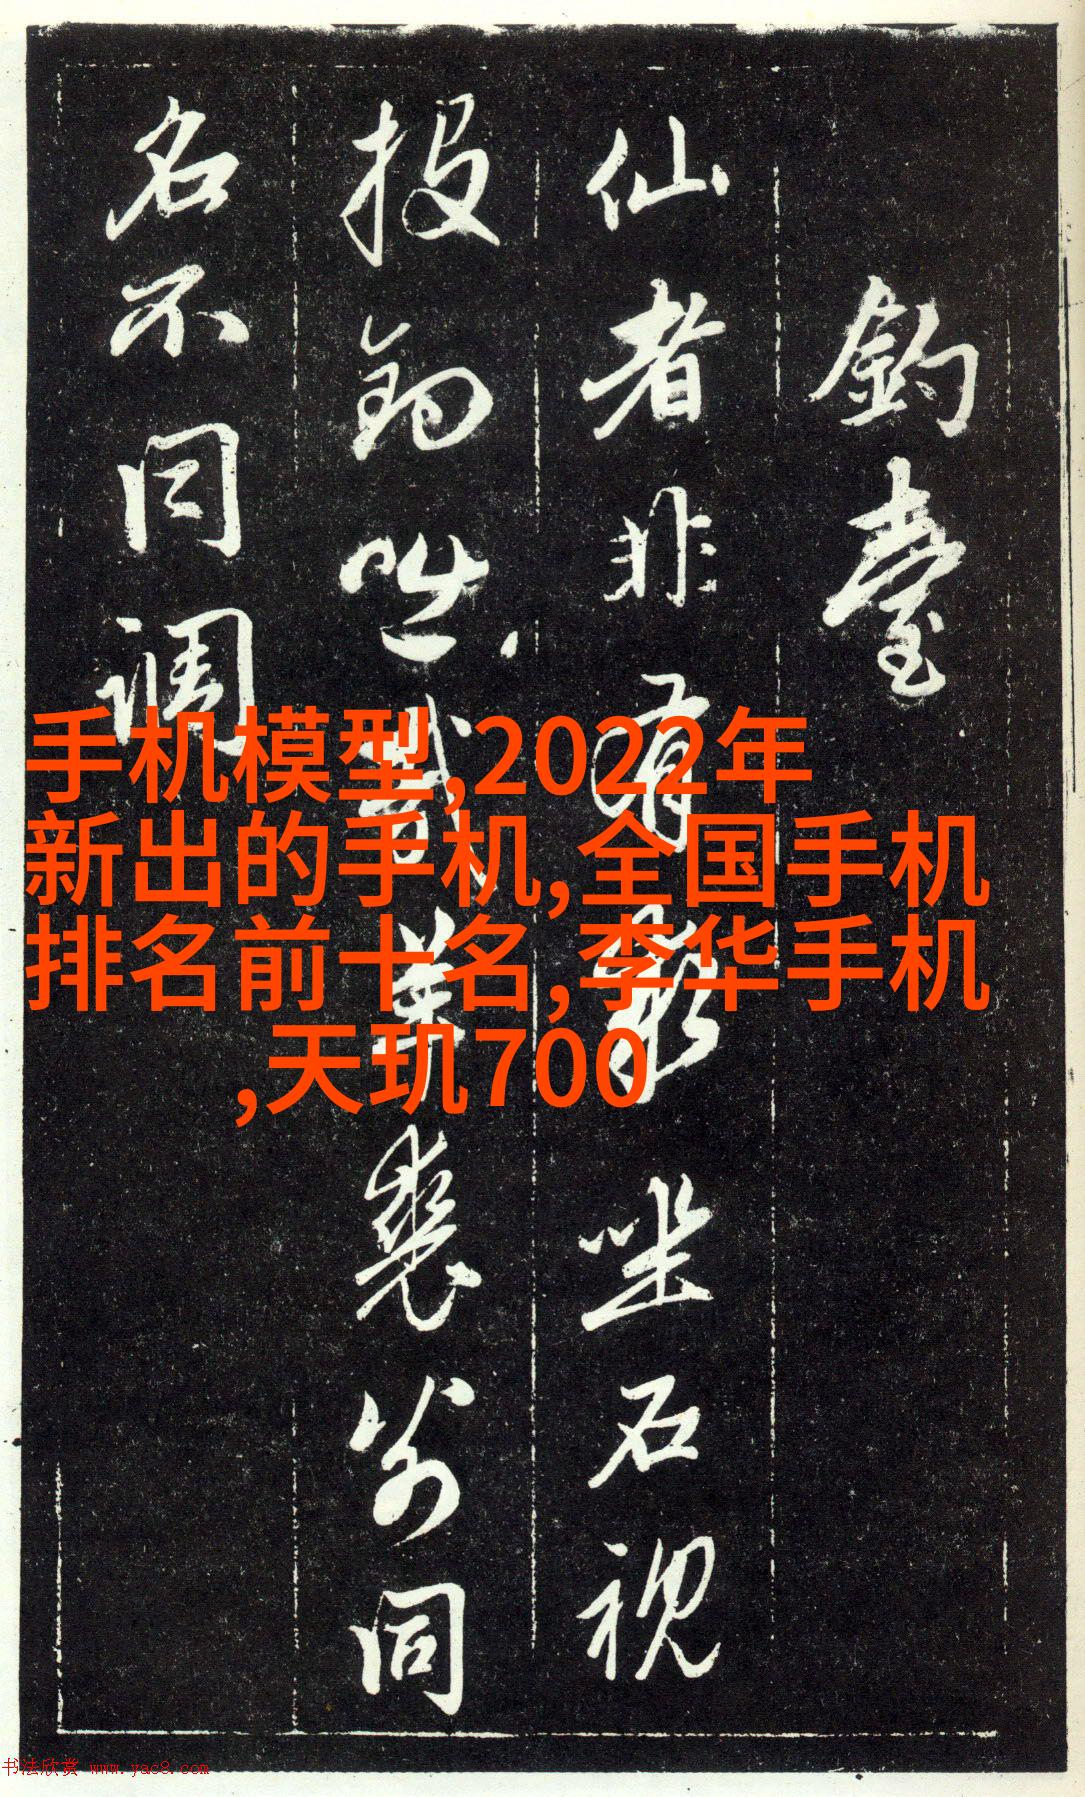 釣臺
仙者非有坐石視
投釣咄哉羊裘同
名不同調
手机模型,2022年
新出的手机,全国手机
排名前十名,李华手机
,天玑700
书法欣赏 www.yac8.com